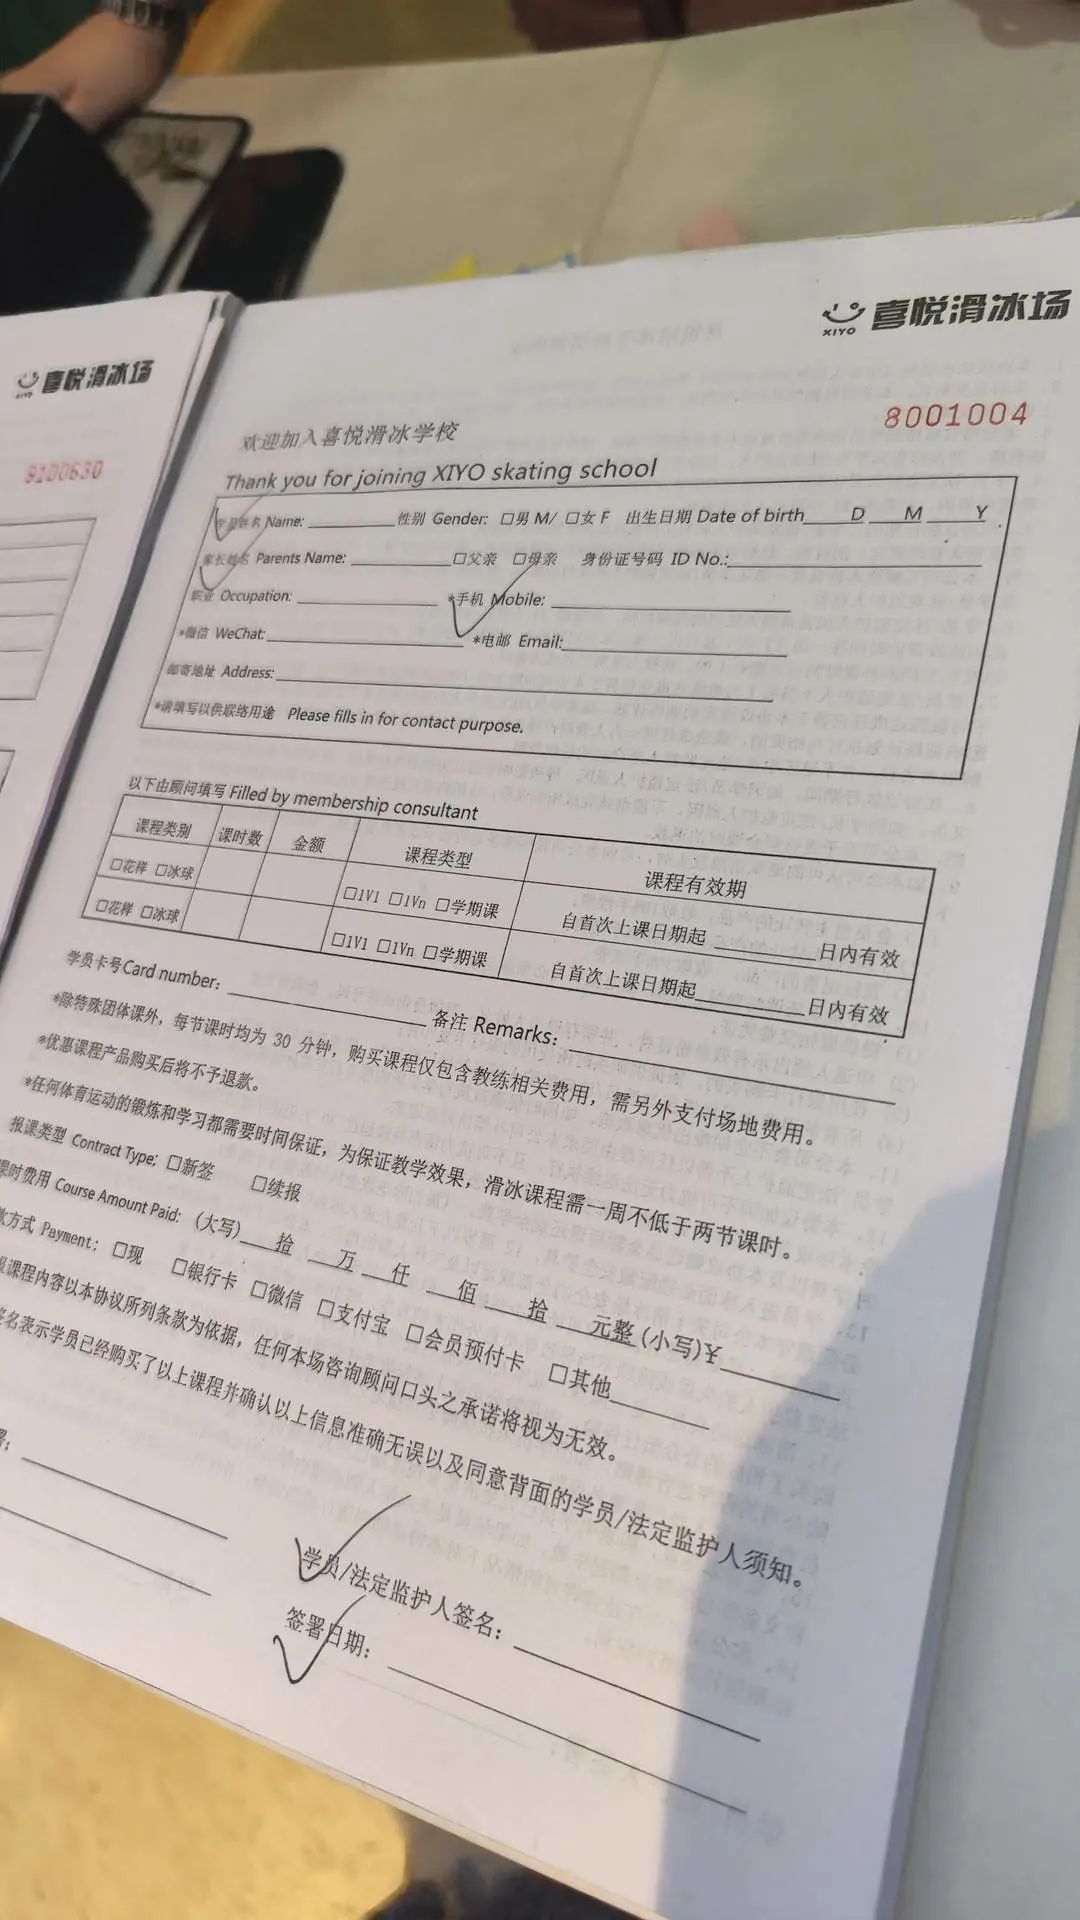 喜悦滑冰场
XIYO
9100630
喜悦滑冰场
XIYO
8001004
欢迎加入喜悦滑冰学校
Thank you for joining XIYO skating school
学员姓名 Name: 性别 Gender: □男 M/ □女 F 出生日期 Date of birth D M Y
家长姓名 Parents Name: □父亲 □母亲 身份证号码 ID No.:
职业 Occupation: *手机 Mobile:
*微信 WeChat: *电邮 Email:
邮寄地址 Address:
*请填写以供联络用途 Please fills in for contact purpose.
以下由顾问填写 Filled by membership consultant
课程类别 课时数 金额 课程类型 课程有效期
□花样 □冰球 □1V1 □1Vn □学期课 自首次上课日期起 日内有效
□花样 □冰球 □1V1 □1Vn □学期课 自首次上课日期起 日内有效
学员卡号Card number: 备注 Remarks:
*除特殊团体课外，每节课时均为 30 分钟，购买课程仅包含教练相关费用，需另外支付场地费用。
*优惠课程产品购买后将不予退款。
*任何体育运动的锻炼和学习都需要时间保证，为保证教学效果，滑冰课程需一周不低于两节课时。
报课类型 Contract Type: □新签 □续报
课时费用 Course Amount Paid: (大写) 拾 万 仟 佰 拾 元整 (小写)¥
款方式 Payment: □现 □银行卡 □微信 □支付宝 □会员预付卡 □其他
课程内容以本协议所列条款为依据，任何本场咨询顾问口头之承诺将视为无效。
签名表示学员已经购买了以上课程并确认以上信息准确无误以及同意背面的学员/法定监护人须知。
学员/法定监护人签名:
签署日期: